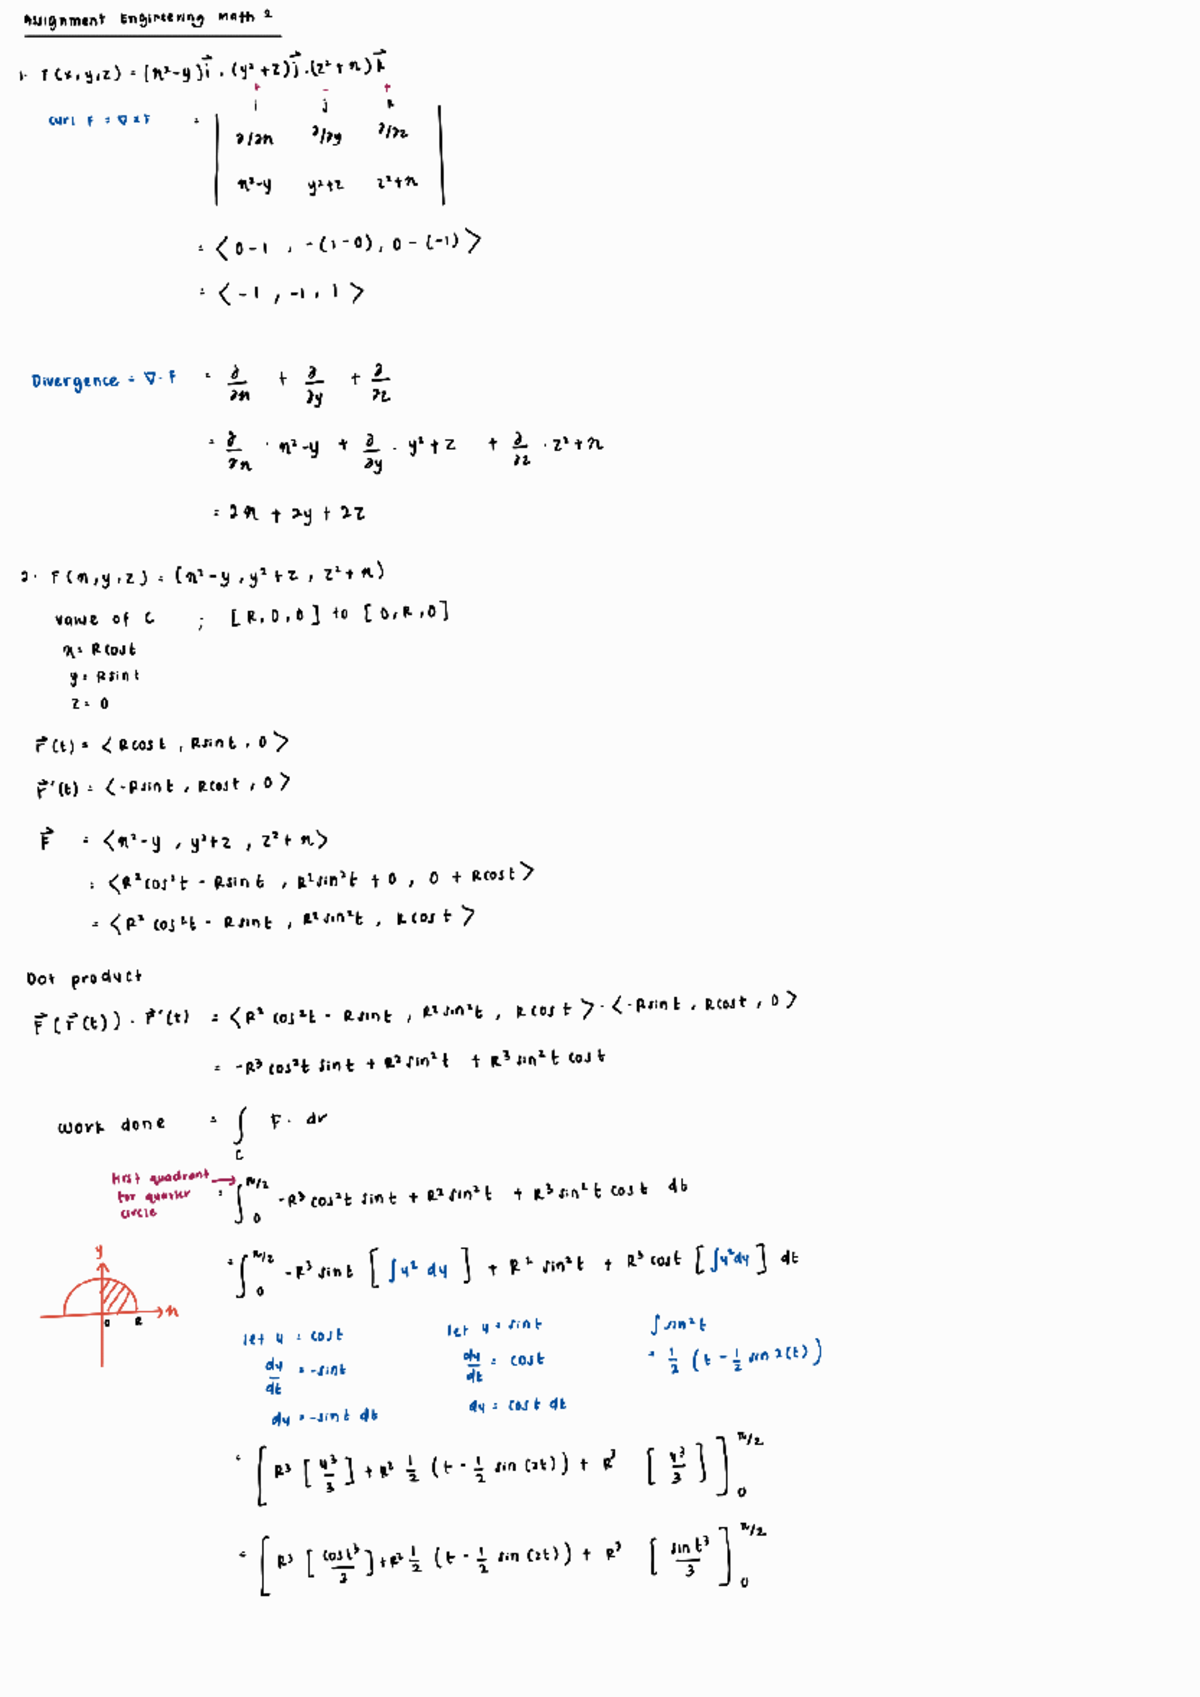 Assignment Engineering Math 2
1. F(x,y,z) = (x²-y)i⃗ . (y²+z)j⃗ . (z²+x)k⃗
+ - +
i j k
Curl F = ∇ x F = | ∂/∂x ∂/∂y ∂/∂z |
x²-y y²+z z²+x
= < 0-1 , -(1-0), 0-(-1) >
= < -1 , -1, 1 >
Divergence = ∇ . F = ∂/∂x + ∂/∂y + ∂/∂z
= ∂/∂x . x²-y + ∂/∂y . y²+z + ∂/∂z . z²+x
= 2x + 2y + 2z
2. F(x,y,z) = (x²-y, y²+z, z²+x)
value of C ; [R,0,0] to [0,R,0]
x = R cos t
y = R sin t
z = 0
r⃗(t) = < R cos t , R sin t , 0 >
r⃗'(t) = < -R sin t , R cos t , 0 >
F⃗ = < x²-y , y²+z , z²+x >
= < R² cos² t - R sin t , R² sin² t + 0 , 0 + R cos t >
= < R² cos² t - R sin t , R² sin² t , R cos t >
Dot product
F⃗(r⃗(t)) . r⃗'(t) = < R² cos² t - R sin t , R² sin² t , R cos t > . < -R sin t , R cos t , 0 >
= -R³ cos² t sin t + R² sin² t + R³ sin² t cos t
Work done = ∫_C F . dr
First quadrant for quarter circle → = ∫_0^π/2 -R³ cos² t sin t + R² sin² t + R³ sin² t cos t dt
= ∫_0^π/2 -R³ sin t [ ∫u² du ] + R² sin² t + R³ cos t [ ∫u² du ] dt
y
0 R x
let u = cos t let u = sin t ∫ sin² t
du/dt = -sin t du/dt = cos t = 1/2 ( t - 1/2 sin 2(t) )
du = -sin t dt du = cos t dt
= [ R³ [ u³/3 ] + R² 1/2 ( t - 1/2 sin (2t) ) + R³ [ u³/3 ] ]_0^π/2
= [ R³ [ cos t³/3 ] + R² 1/2 ( t - 1/2 sin (2t) ) + R³ [ sin t³/3 ] ]_0^π/2